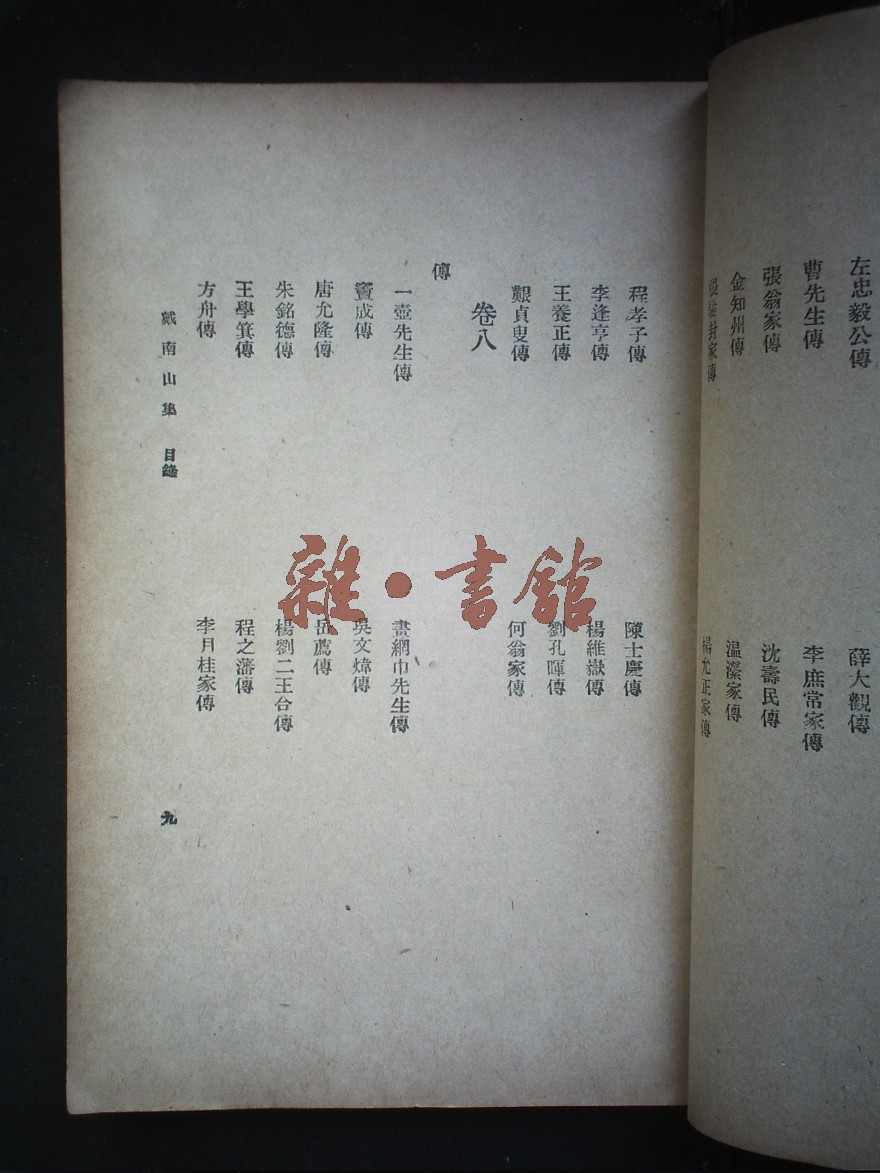 左忠毅公傳
薛大觀傳
曹先生傳
李庶常家傳
張翁家傳
沈壽民傳
金知州傳
温濚家傳
張維封家傳
楊允正家傳
程孝子傳
陳士慶傳
李逢亨傳
楊維嶽傳
王養正傳
劉孔暉傳
艱貞叟傳
何翁家傳
卷八
傳
一壺先生傳
畫網巾先生傳
竇成傳
吳文煒傳
唐允隆傳
岳薦傳
朱銘德傳
楊劉二王合傳
王學箕傳
程之藩傳
方舟傳
李月桂家傳
戴南山集 目錄
九
雜·書館